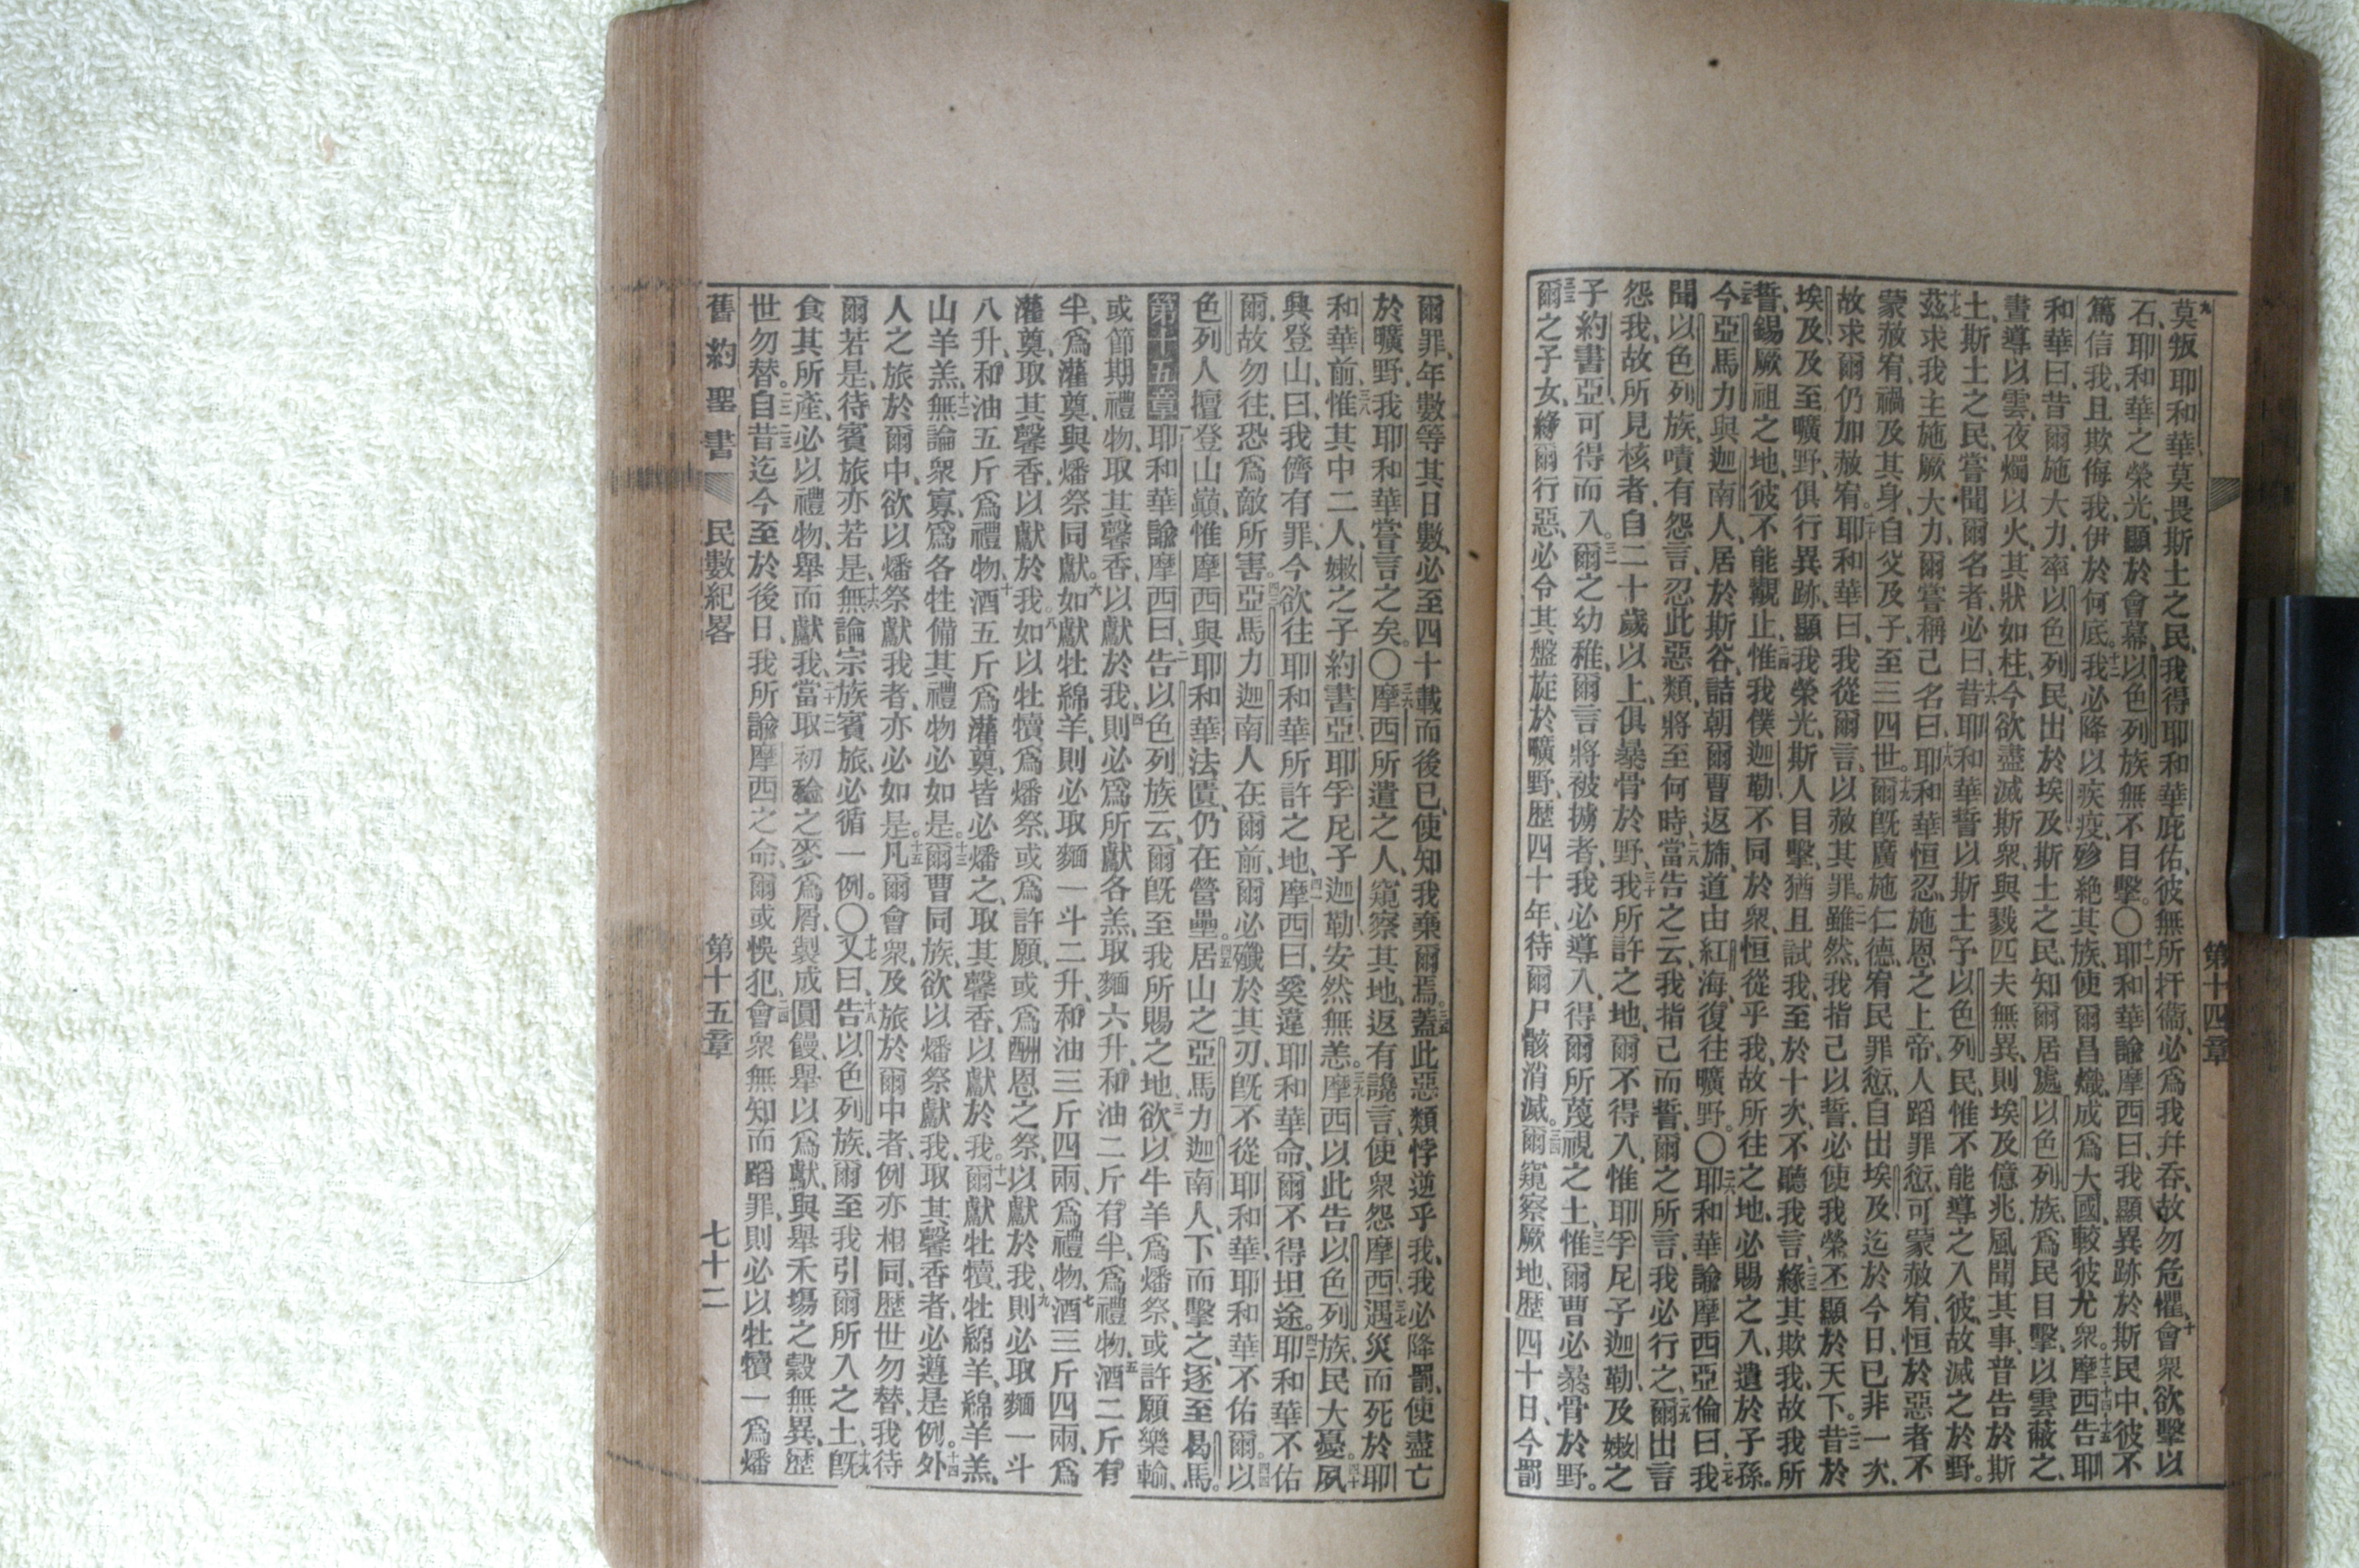 第十四章
莫叛耶和華莫畏斯土之民、我得耶和華庇佑、彼無所扞衞、必爲我幷吞、故勿危懼、會衆欲擊以
石、耶和華之榮光、顯於會幕、以色列族無不目擊。〇耶和華諭摩西曰、我顯異跡於斯民中、彼不
篤信我、且欺侮我、伊於何底。我必降以疾疫、殄絕其族、使爾昌熾、成爲大國、較彼尤衆。摩西告耶
和華曰、昔爾施大力、率以色列民、出於埃及、斯土之民、知爾居處以色列族、爲民目擊、以雲蔽之、
晝導以雲、夜燭以火、其狀如柱、今欲盡滅斯衆、與戮匹夫無異、則埃及億兆、風聞其事、普告於斯
土、斯土之民、嘗聞爾名者、必曰、昔耶和華誓以斯土、予以色列民、惟不能導之入彼、故滅之於野。
茲求我主施厥大力、爾嘗稱己名曰、耶和華恒忍、施恩之上帝、人蹈罪愆、可蒙赦宥、恒於惡者不
蒙赦宥、禍及其身、自父及子、至三四世。爾旣廣施仁德、宥民罪愆、自出埃及、迄於今日、已非一次、
故求爾仍加赦宥。耶和華曰、我從爾言、以赦其罪。雖然、我指己以誓、必使我榮丕顯於天下。昔於
埃及、及至曠野、俱行異跡、顯我榮光、斯人目擊、猶且試我、至於十次、不聽我言、緣其欺我、故我所
誓、錫厥祖之地、彼不能觀止、惟我僕迦勒、不同於衆、恒從乎我、故所往之地、必賜之入、遺於子孫。
今亞馬力與迦南人、居於斯谷、詰朝爾曹返斾、道由紅海、復往曠野。〇耶和華諭摩西亞倫曰、我
聞以色列族、嘖有怨言、忍此惡類、將至何時、當告之云、我指己而誓、爾之所言、我必行之、爾出言
怨我、故所見核者、自二十歲以上、俱暴骨於野、我所許之地、爾不得入、惟耶孚尼子迦勒、及嫩之
子約書亞可得而入。爾之幼稚、爾言將被擄者、我必導入、得爾所蔑視之土、惟爾曹必暴骨於野。
爾之子女、緣爾行惡、必令其盤旋於曠野、歷四十年、待爾尸骸消滅。爾窺察厥地、歷四十日、今罰
爾罪、年數等其日數、必至四十載而後已、使知我棄爾焉。蓋此惡類悖逆乎我、我必降罰、使盡亡
於曠野、我耶和華嘗言之矣。〇摩西所遣之人、窺察其地、返有讒言、使衆怨摩西、遇災而死於耶
和華前、惟其中二人、嫩之子約書亞、耶孚尼子迦勒安然無恙。摩西以此告以色列族、民大憂。夙
興登山、曰、我儕有罪、今欲往耶和華所許之地、摩西曰、奚違耶和華命、爾不得坦途。耶和華不佑
爾、故勿往、恐爲敵所害。亞馬力迦南人在爾前、爾必殲於其刃、旣不從耶和華、耶和華不佑爾。以
色列人擅登山巔、惟摩西與耶和華法匱、仍在營壘。居山之亞馬力迦南人、下而擊之、逐至曷馬。
第十五章耶和華諭摩西曰、告以色列族云、爾旣至我所賜之地、欲以牛羊爲燔祭、或許願樂輸、
或節期禮物、取其馨香、以獻於我、則必爲所獻各羔、取麵六升、和油二斤有半、爲禮物、酒二斤有
半、爲灌奠、與燔祭同獻。如獻牡綿羊、則必取麵一斗二升、和油三斤四兩、爲禮物、酒三斤四兩、爲
灌奠、取其馨香、以獻於我。如以牡犢爲燔祭、或爲許願、或爲酬恩之祭、以獻於我、則必取麵一斗
八升、和油五斤爲禮物、酒五斤爲灌奠、皆必燔之、取其馨香、以獻於我。爾獻牡犢、牡綿羊、綿羊羔、
山羊羔、無論衆寡、爲各牲備其禮物必如是。爾曹同族、欲以燔祭獻我、取其馨香者、必遵是例。外
人之旅於爾中、欲以燔祭獻我者、亦必如是。凡爾會衆、及旅於爾中者、例亦相同、歷世勿替、我待
爾若是、待賓旅亦若是、無論宗族賓旅、必循一例。〇又曰、告以色列族、爾至我引爾所入之土、旣
食其所產、必以禮物、舉而獻我、當取初稔之麥、爲屑、製成圓饅、舉以爲獻、與舉禾場之穀無異、歷
世勿替。自昔迄今至於後日、我所諭摩西之命、爾或悞犯、會衆無知而蹈罪、則必以牡犢一爲燔
舊約聖書 民數紀畧 第十五章 七十二